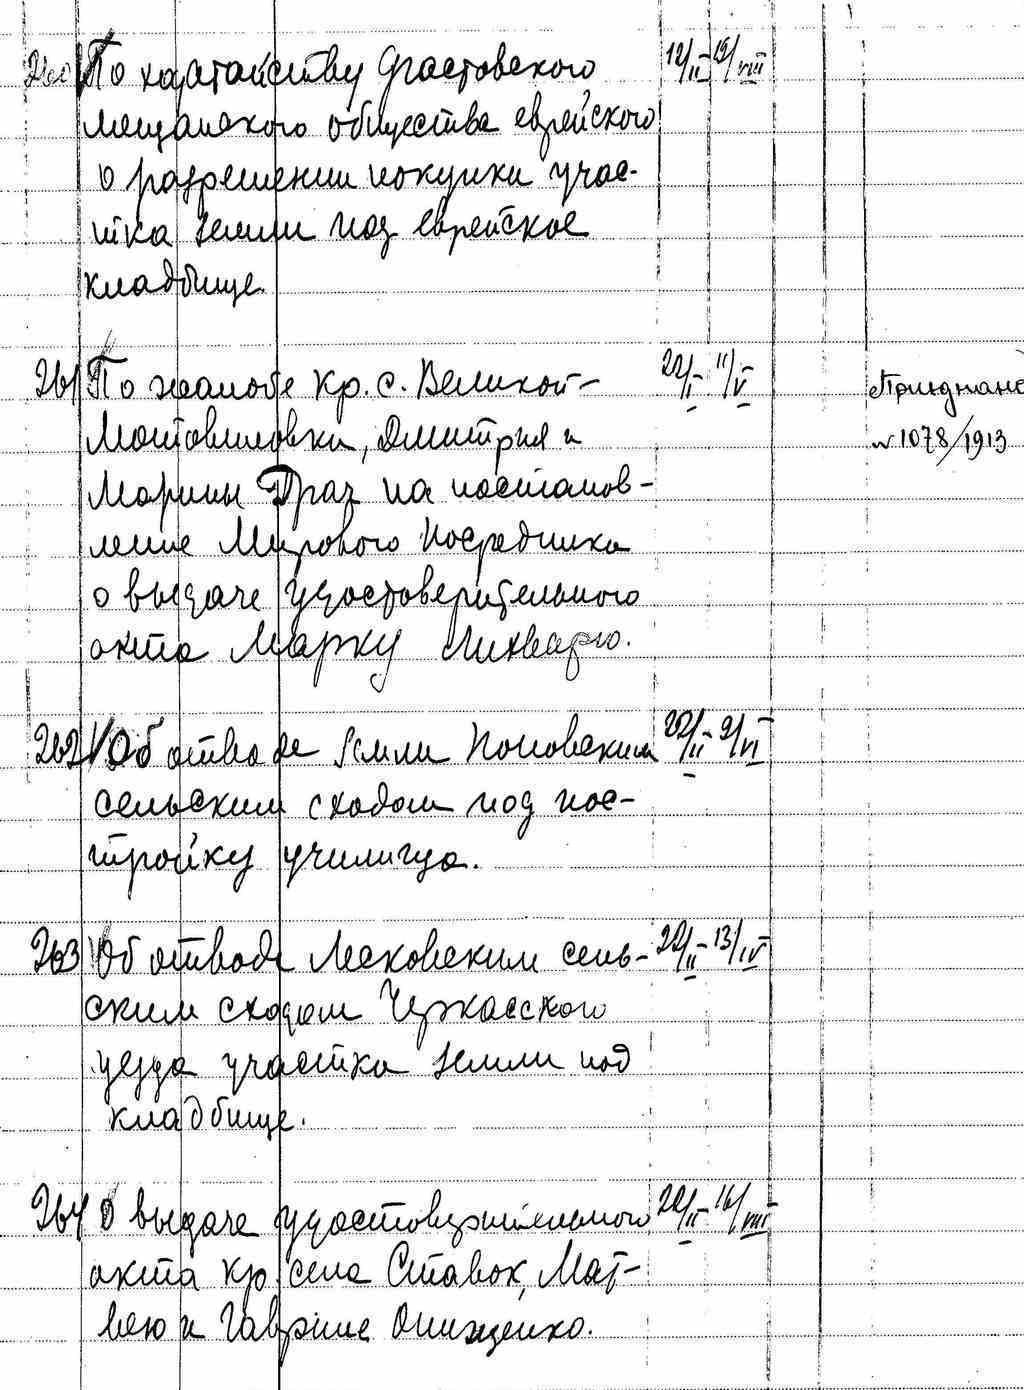 260 По ходатайству Фастовского 19/II 19/VIII
мещанского общества еврейского
о разрешении покупки учас-
тка земли под еврейское
кладбище.
261 По жалобе кр. с. Великой- 22/I 11/V Приєднане
Мотовиловки, Дмитрия и № 1078/1913
Марины Драч на постанов-
ление Мирового Посредника
о выдаче удостоверительного
акта Марку Лихварю.
262 Об отводе земли Поповским 22/II 9/VI
сельским сходом под пос-
тройку училища.
263 Об отводе Лесковским сель- 22/II 13/IV
ским сходом Черкасского
уезда участка земли под
кладбище.
264 О выдаче удостоверительного 22/II 16/VIII
акта кр. села Ставок, Мат-
вею и Гавриле Онищенко.